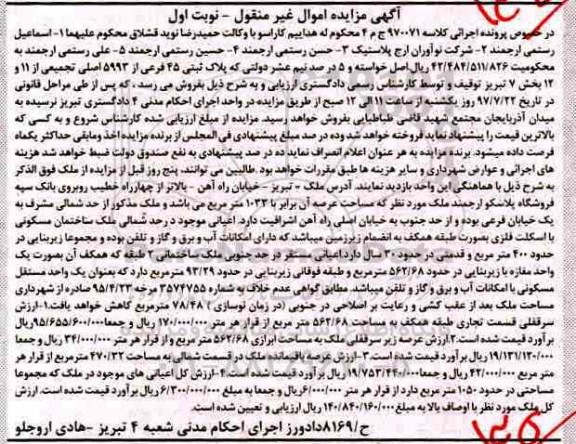 آگهی مزایده اموال غیر منقول - نوبت اول
در خصوص پرونده اجرائی کلاسه ۹۷۰۰۷۱ ج م ۴ محکوم له هداییم کاراسو با وکالت حمیدرضا نوید قشلاق محکوم علیهما ۱- اسماعیل
رستمی ارجمند ۲- شرکت نوآوران ارج پلاستیک ۳- حسن رستمی ارجمند ۴- حسین رستمی ارجمند ۵- علی رستمی ارجمند به
محکومیت ۴۲/۴۸۴/۵۱۱/۸۲۶ ریال اصل خواسته و ۵ در صد نیم عشر دولتی که پلاک ثبتی ۴۵ فرعی از ۵۹۹۳ اصلی تجمیعی از ۱۱ و
۱۲ بخش ۷ تبریز توقیف و توسط کارشناس رسمی دادگستری ارزیابی و به شرح ذیل بفروش می رسد، که پس از طی مراحل قانونی
در تاریخ ۹۷/۷/۲۲ روز یکشنبه از ساعت ۱۱ الی ۱۲ صبح از طریق مزایده در واحد اجرای احکام مدنی ۴ دادگستری تبریز نرسیده به
میدان آذربایجان مجتمع شهید قاضی طباطبایی بفروش خواهد رسید. مزایده از مبلغ ارزیابی شده کارشناس شروع و به کسی که
بالاترین قیمت را پیشنهاد نماید فروخته خواهد شد وده در صد مبلغ پیشنهادی فی المجلس از برنده مزایده اخذ ومابقی حداکثر یکماه
فرصت داده میشود. برنده مزایده به هر عنوان اعلام انصراف نماید ده در صد پیشنهادی به نفع صندوق دولت ضبط خواهد شد هزینه
های اجرائی و عوارض شهرداری و سایر هزینه ها طبق مقررات خواهد بود. طالبین می توانند، پنج روز قبل از مزایده از ملک فوق الذکر
به شرح ذیل با هماهنگی این واحد بازدید نمایند. آدرس ملک - تبریز - خیابان راه آهن - بالاتر از چهارراه خطیب روبروی بانک سپه
فروشگاه پلاسکو ارجمند ملک مورد نظر که مساحت عرصه آن برابر با ۱۰۳۳ متر مربع می باشد و ملک مذکور از حد شمالی مشرف به
یک خیابان فرعی بوده و از حد جنوب به خیابان اصلی راه آهن اشرافیت دارد. اعیانی موجود د رحد شمالی ملک ساختمان مسکونی
با اسکلت فلزی بصورت طبقه همکف به انضمام زیرزمین میباشد که دارای امکانات آب و برق و گاز و تلفن بوده و مجموعا زیربنایی در
حدود ۴۰۰ متر مربع و قدمتی در حدود ۳۰ سال دارد.اعیانی مستقر در حد جنوبی ملک ساختمانی ۲ طبقه که همکف آن بصورت یک
واحد مغازه با زیربنایی در حدود ۵۶۲/۶۸ مترمربع و طبقه فوقانی زیربنایی در حدود ۹۳/۲۹ مترمربع دارد که بعنوان یک واحد مستقل
مسکونی با امکانات آب و برق و گاز و تلفن میباشد. مطابق گواهی عدم خلاف به شماره ۳۵۷۴۷۵۵ مرخه ۹۵/۴/۲۳ صادره از شهرداری
مساحت ملک بعد از عقب کشی و رعایت بر اصلاحی در جنوبی (در زمان نوسازی) ۷۸/۴۸ مترمربع کاهش خواهد یافت.۱-ارزش
سرقفلی قسمت تجاری طبقه همکف به مساحت ۵۶۲/۶۸ متر مربع از قرار هر متر ۱۷۰/۰۰۰/۰۰۰ ریال و جمعا ۹۵/۶۵۵/۶۰۰/۰۰۰ریال
برآورد قیمت شده است.۲.ارزش عرصه زیر سرقفلی ملک به مساحت ابرازی ۵۶۲/۶۸ متر مربع و از قرار هر متر ۳۴/۰۰۰/۰۰۰ ریال و جمعا
۱۹/۱۳۱/۱۲۰/۰۰۰ ریال برآورد قیمت شده است.۳-ارزش عرصه باقیمانده ملک در قسمت شمالی به مساحت ۴۷۰/۳۲ مترمربع از قرار هر
متر مربع ۴۲/۰۰۰/۰۰۰ ریال و جمعا ۱۹/۷۵۳/۴۴۰/۰۰۰ ریال برآورد قیمت شده است.۴-ارزش کل اعیانی های موجود در ملک که مجموعا
مساحتی در حدود ۱۰۵۰ متر مربع دارد از قرار هر متر ۶/۰۰۰/۰۰۰ ریال و جمعا به مبلغ ۶/۳۰۰/۰۰۰/۰۰۰ ریال برآورد قیمت شده است. ارزش
کل ملک مورد نظر با اوصاف بالا به مبلغ ۱۴۰/۸۴۰/۱۶۰/۰۰۰ ریال ارزیابی و تعیین شده است.
ح/۸۱۶۹دادورز اجرای احکام مدنی شعبه ۴ تبریز -هادی اروجلو